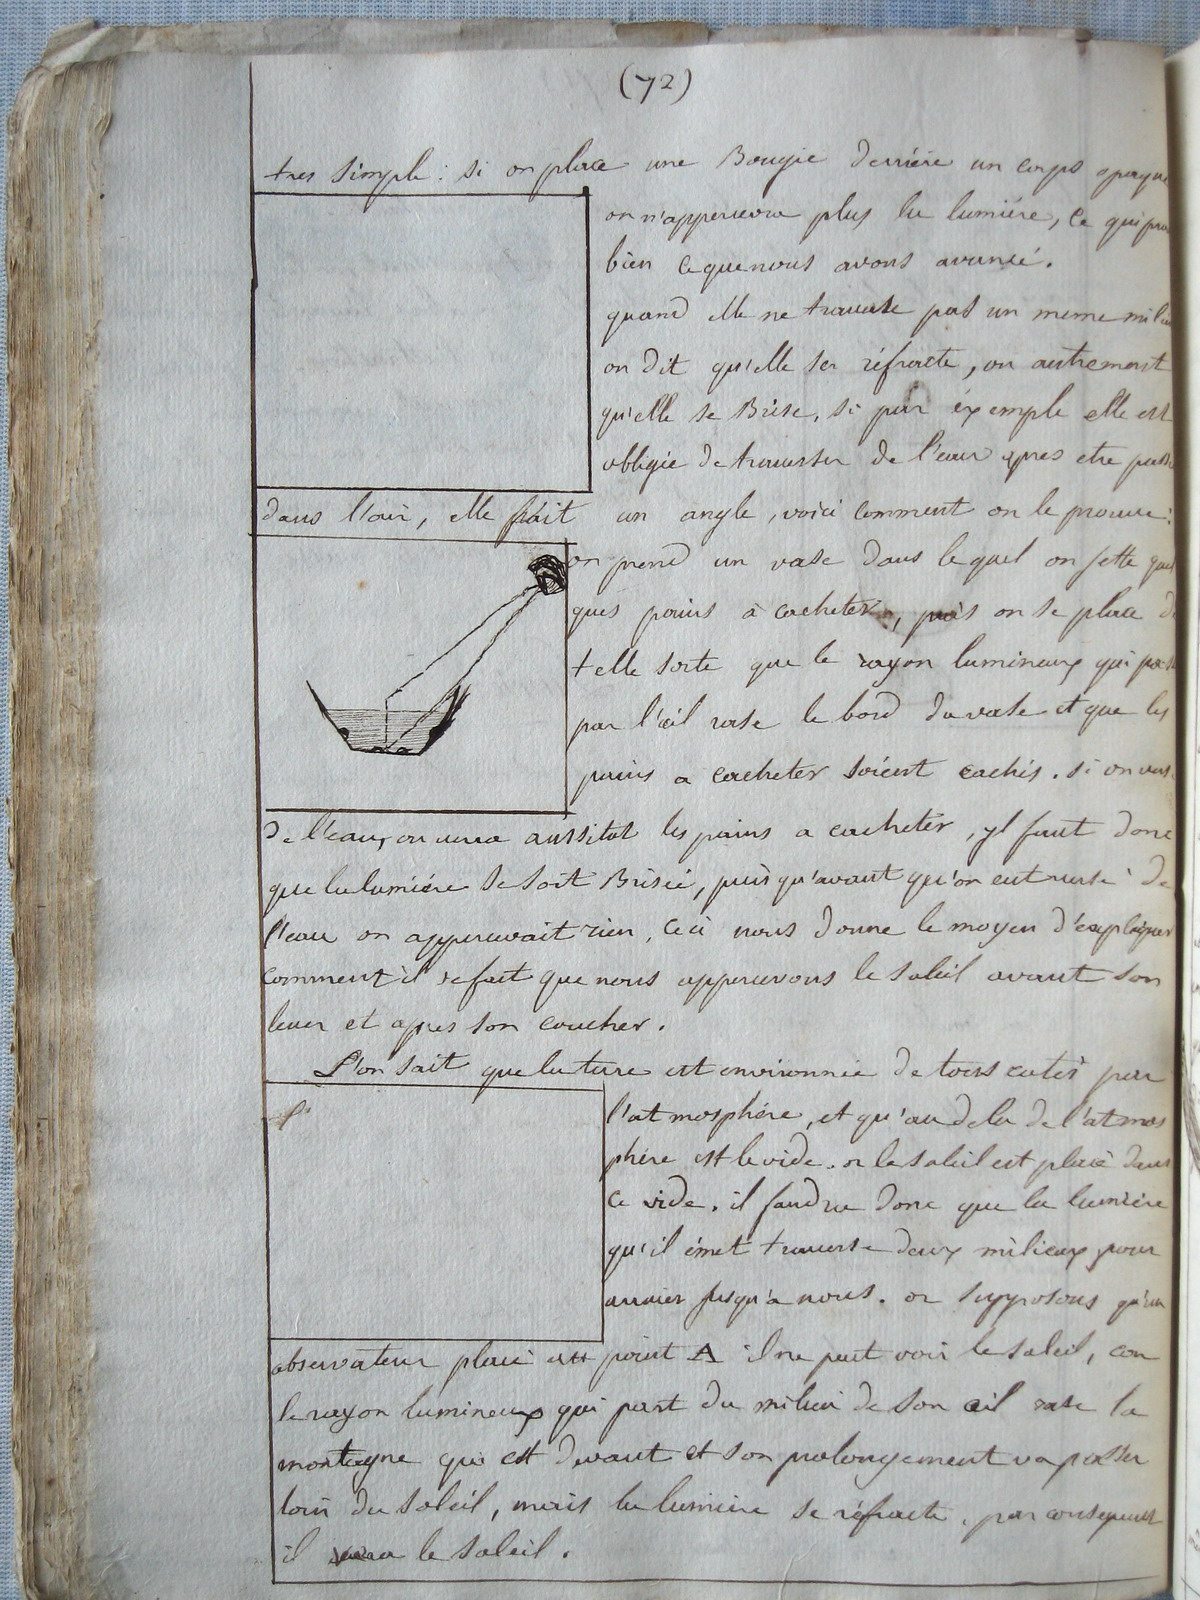 (72)
tres simple : si on place une Bougie derriére un corps opaque
on n'appercevra plus la lumiére, ce qui
bien ce que nous avons avancé.
quand elle ne traverse pas un meme
on dit qu'elle se réfracte, ou autrement
qu'elle se Brise, si par éxemple elle est
obligée de traverser de l'eau apres etre
dans l'air, elle fait un angle, voici comment on le prouve :
on prend un vase dans lequel on jette
ques pains à cacheter, puis on se place
telle sorte que le rayon lumineux qui
par l'œil rase le bord du vase et que les
pains a cacheter soient cachés. si on
de l'eau, on verra aussitot les pains a cacheter, yl faut donc
que la lumiére se soit Brisée, puis qu'avant qu'on eut versé de
l'eau on appercevait rien, ceci nous donne le moyen d'expliquer
comment il se fait que nous appercevons le soleil avant son
lever et apres son coucher.
L'on sait que la terre est environnée de tous cotés par
l'atmosphére, et qu'au dela de l'atmos
phére est le vide. or le soleil est placé dans
ce vide. il faudra donc que la lumiére
qu'il émet traverse deux milieux pour
arriver jusqu'a nous. or supposons qu'un
observateur placé au point A il ne peut voir le soleil, car
le rayon lumineux qui part du milieu de son œil rase la
montagne qui est devant et son prolongement va passer
loin du soleil, mais la lumiére se réfracte, par consequent
il verra le soleil.